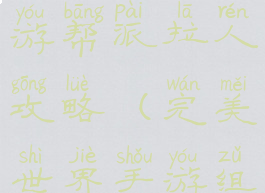 yóu bāng pài lā rén
游帮派拉人
gōng lüè wán měi
攻略（完美
shì jiè shǒu yóu zǔ
世界手游组